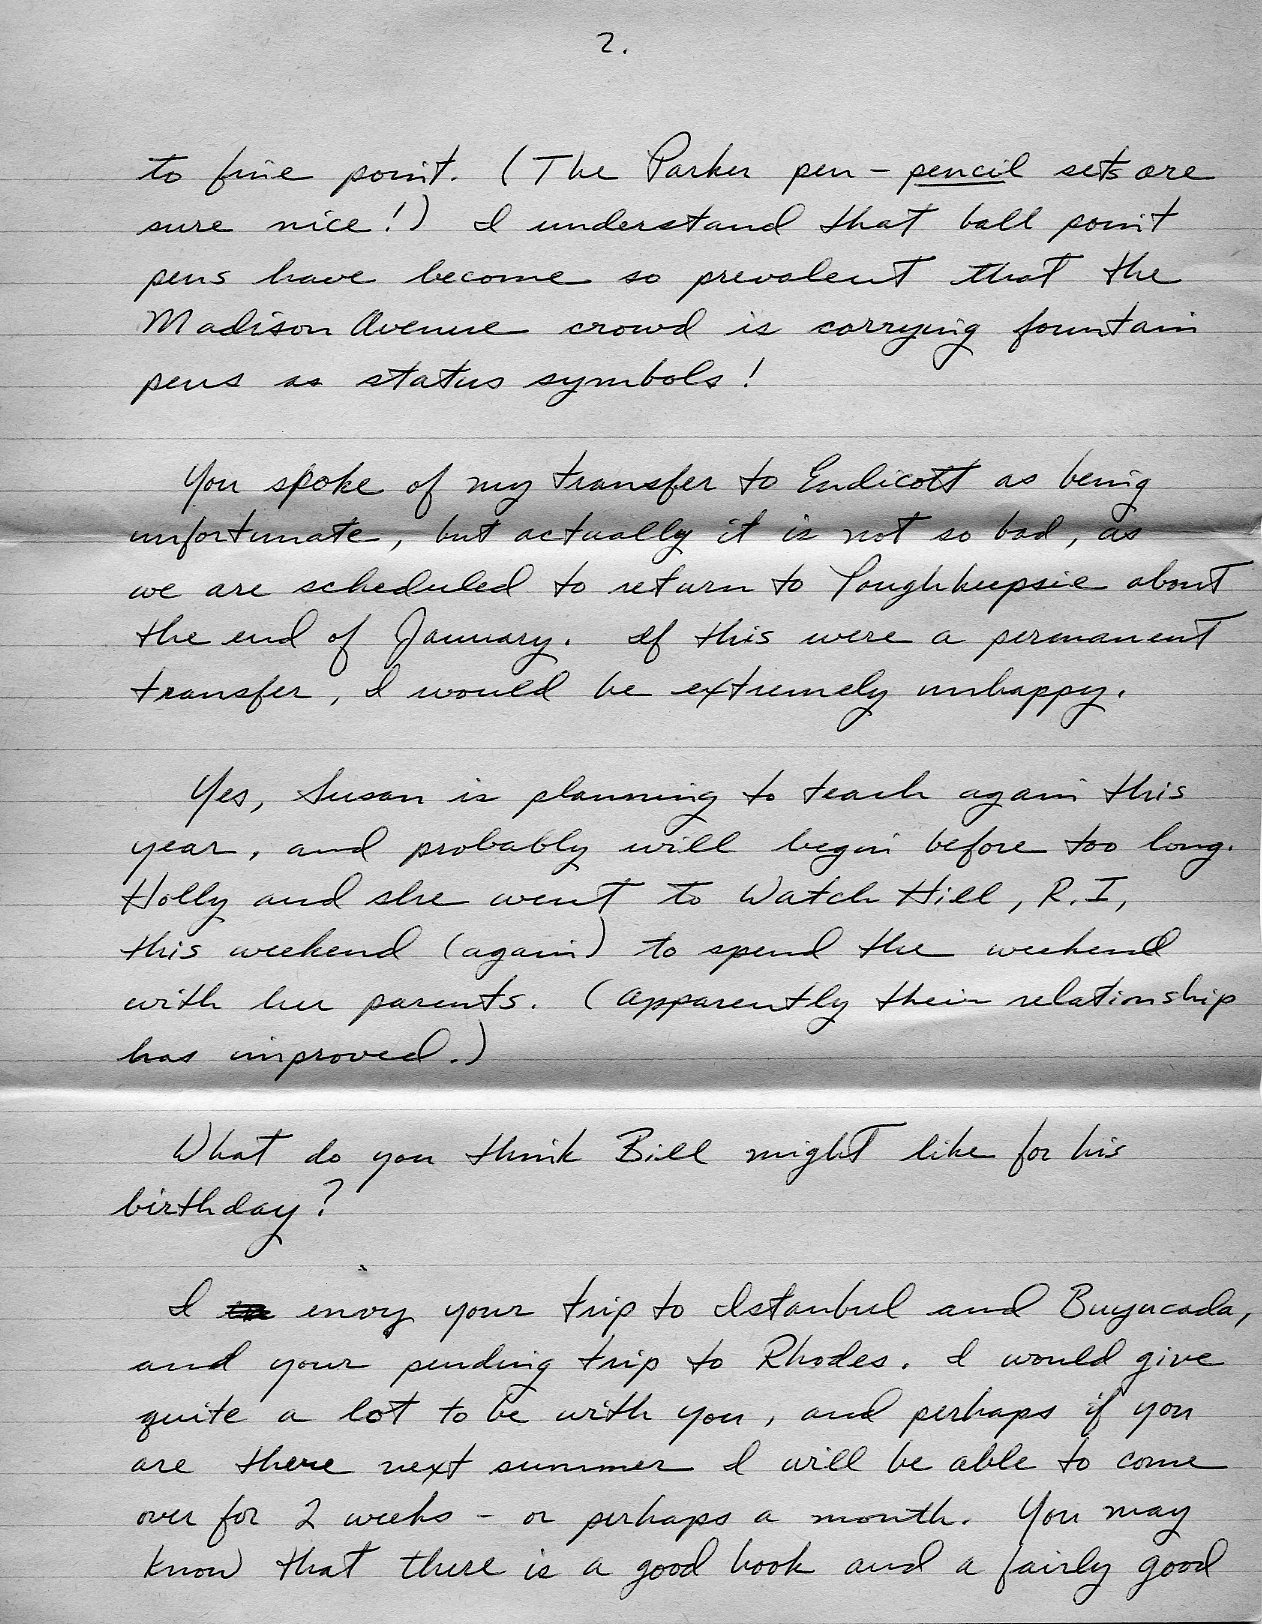 2.
to fine point. (The Parker pen - pencil sets are
sure nice!) I understand that ball point
pens have become so prevalent that the
Madison Avenue crowd is carrying fountain
pens as status symbols!
You spoke of my transfer to Endicott as being
unfortunate, but actually it is not so bad, as
we are scheduled to return to Poughkeepsie about
the end of January. If this were a permanent
transfer, I would be extremely unhappy.
Yes, Susan is planning to teach again this
year, and probably will begin before too long.
Holly and she went to Watch Hill, R.I,
this weekend (again) to spend the weekend
with her parents. (Apparently their relationship
has improved.)
What do you think Bill might like for his
birthday?
I envy your trip to Istanbul and Buyucada,
and your pending trip to Rhodes. I would give
quite a lot to be with you, and perhaps if you
are there next summer I will be able to come
over for 2 weeks - or perhaps a month. You may
know that there is a good book and a fairly good